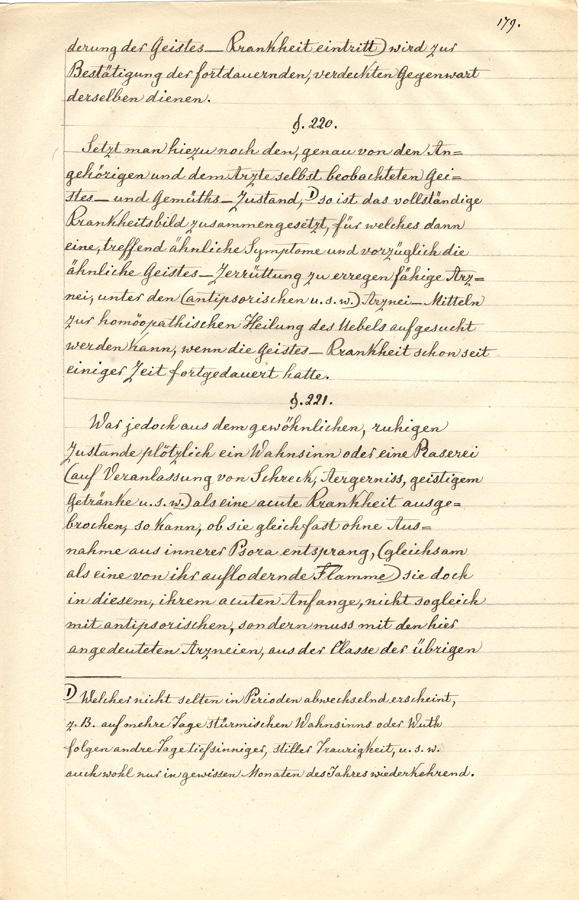 179.
derung der Geistes-Krankheit eintritt) wird zur
Bestätigung der fortdauernden, verdeckten Gegenwart
derselben dienen.
§. 220.
Setzt man hiezu noch den, genau von den An=
gehörigen und dem Arzte selbst beobachteten Gei=
stes- und Gemüths-Zustand, 1) so ist das vollständige
Krankheitsbild zusammengesetzt, für welches dann
eine, treffend ähnliche Symptome und vorzüglich die
ähnliche Geistes-Zerrüttung zu erregen fähige Arz=
nei, unter den (antipsorischen u. s. w.) Arznei-Mitteln
zur homöopathischen Heilung des Uebels aufgesucht
werden kann, wenn die Geistes-Krankheit schon seit
einiger Zeit fortgedauert hatte.
§. 221.
War jedoch aus dem gewöhnlichen, ruhigen
Zustande plötzlich ein Wahnsinn oder eine Raserei
(auf Veranlassung von Schreck, Aergerniss, geistigem
Getränke u. s. w.) als eine acute Krankheit ausge=
brochen, so kann, ob sie gleich fast ohne Aus=
nahme aus innerer Psora entsprang, (gleichsam
als eine von ihr auflodernde Flamme) sie doch
in diesem, ihrem acuten Anfange, nicht sogleich
mit antipsorischen, sondern muss mit den hier
angedeuteten Arzneien, aus der Classe der übrigen
1) Welcher nicht selten in Perioden abwechselnd erscheint,
z. B. auf mehre Tage stürmischen Wahnsinns oder Wuth
folgen andre Tage tiefsinniger, stiller Traurigkeit, u. s. w.
auch wohl nur in gewissen Monaten des Jahres wiederkehrend.